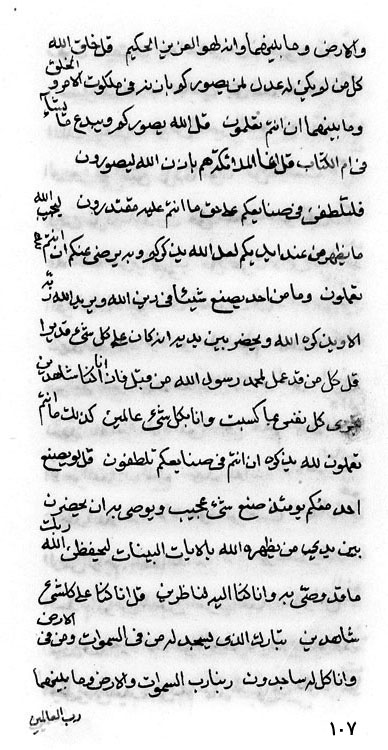 والارض وما بينهما وانه لهو العزيز الحكيم قل خلق الله
كل من لو يكن له عدل لمن يصوركم باذنه في ملكوت الامر والخلق
وما بينهما ان انتم تعلمون قل الله يصوركم ويبدع ما يشاء
في ام الكتاب قل انما الملائكة هم باذن الله ليصورون
فلتلطفن في صنايعكم على ما انتم عليه مقتدرون ليحب الله
ما يظهر من عند ايديكم لعل الله يذكركم وبه يرضى عنكم ان انتم
تعملون وما من احد يصنع شيئا في دين الله ويريد الله ربه
الا ويذكره الله ويحضر بين يديه انه كان على كل شيء قديرا
قل كل من قد عمل لمحمد رسول الله من قبل فانا كنا شاهدين
نجزى كل نفس بما كسبت وانا بكل شيء عالمين كذلك ما انتم
تعملون لله يذكره ان انتم في صنايعكم تلطفون قل لو يصنع
احد منكم يومئذ صنع شيء عجيب ويوصى به ان يحضرن
بين يدي من يظهره الله بالايات البينات ليحفظن الله ربك
ما قد وصى به وانا كنا اليه لناظرين قل انا كنا على كل شيء
شاهدين تبارك الذي يسجد له من في السموات ومن في الارض
وانا كل له ساجدون ربنا رب السموات والارض وما بينهما
رب العالمين
١٠٧